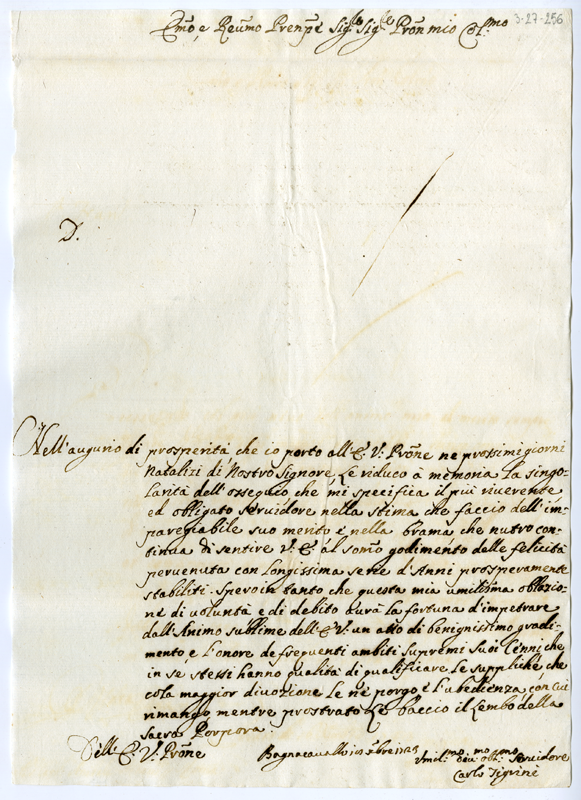 3-27-256
Emo, e Reumo Prenpe Sig.re Sig.re Pron mio Col.mo
D.
Nell'augurio di prosperità che io porto all'E. V. Prone ne prossimi giorni
Natalizi di Nostro Signore, Le riduco à memoria La singo-
larità dell'ossequio che mi specifica il piú riverente,
ed obligato Servidore nella stima che faccio dell'im-
pareggiabile suo merito é nella brama che nutro con-
tinua di sentire V. E. al somo godimento delle felicità
pervenuta con Longissima serie d'Anni prosperamente
stabiliti. Spero in tanto che questa mia umilissima oblazio-
ne di volontà e di debito avrà La fortuna d'impetrare
dall'Animo sublime dell'E. V. un atto di benignissimo gradi-
mento, e L'onore de frequenti ambiti supremi suoi Cenni che
in se stessi hanno qualità di qualificare Le suppliche, che
colà maggior divozione Le ne porgo, é L'ubedienza, con cui
rimango mentre prostrato Le baccio il Lembo della
Sacra Porpora.
Dell'E. V. Prone
Bagnacavallo
Umil.mo dev.mo obl.mo Servidore
Carlo Tigrini